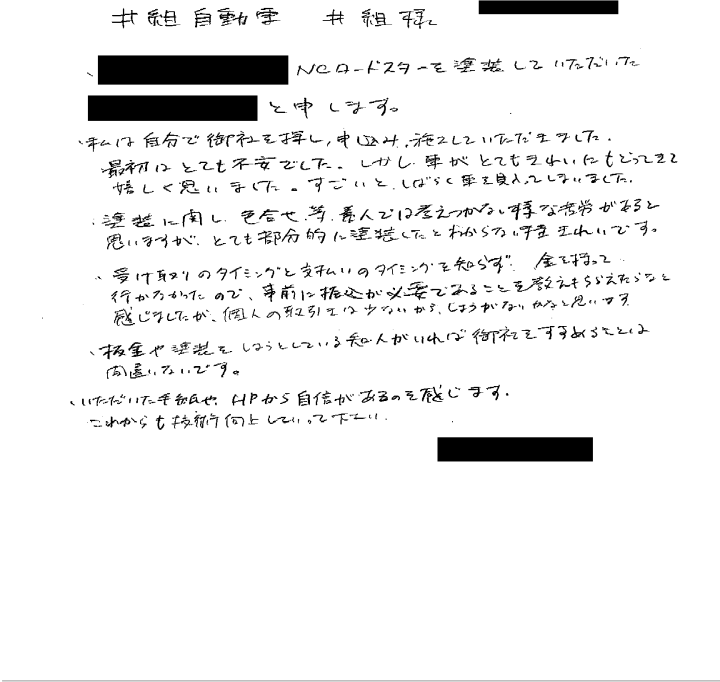 井組自動車 井組様
・NCロードスターを塗装していただいた
と申します。
・私は自分で御社を探し、申込み、施工していただきました。
最初はとても不安でした。しかし車がとてもきれいにもどってきて
嬉しく思いました。すごいと、しばらく車を見入ってしまいました。
・塗装に関し、色合せ、等、素人では考えつかない様な苦労があると
思いますが、とても部分的に塗装したとわからない程きれいです。
・受け取りのタイミングと支払いのタイミングを知らず、金を持って
行かなかったので、事前に振込が必要であることを教えもらえたらなと
感じましたが、個人の取引きは少ないから、しょうがないかなと思います
・板金や塗装をしようとしている知人がいれば御社をすすめることは
間違いないです。
・いただいた手紙や、HPから自信があるのを感じます。
これからも技術向上していって下さい